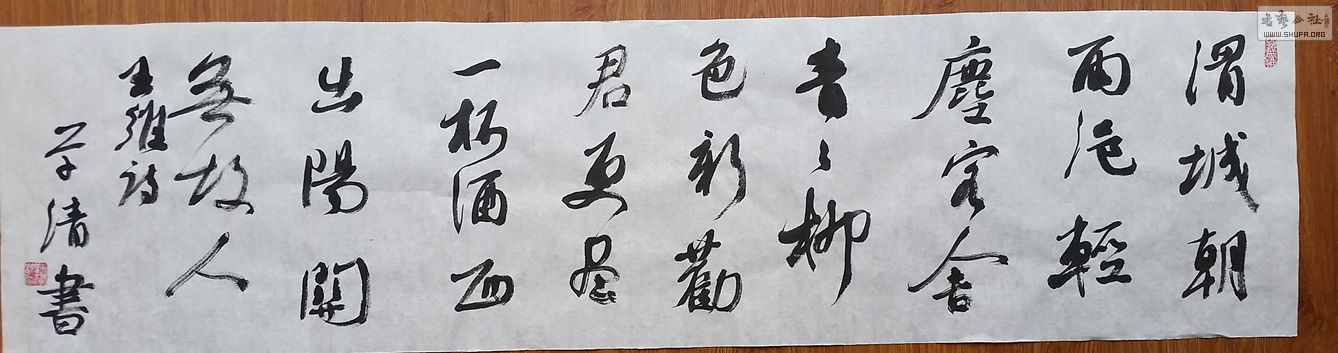 渭城朝
雨浥輕
塵客舍
青々柳
色新勸
君更盡
一杯酒西
出陽關
無故人
王維詩
学清書
WWW.SHUFA.ORG